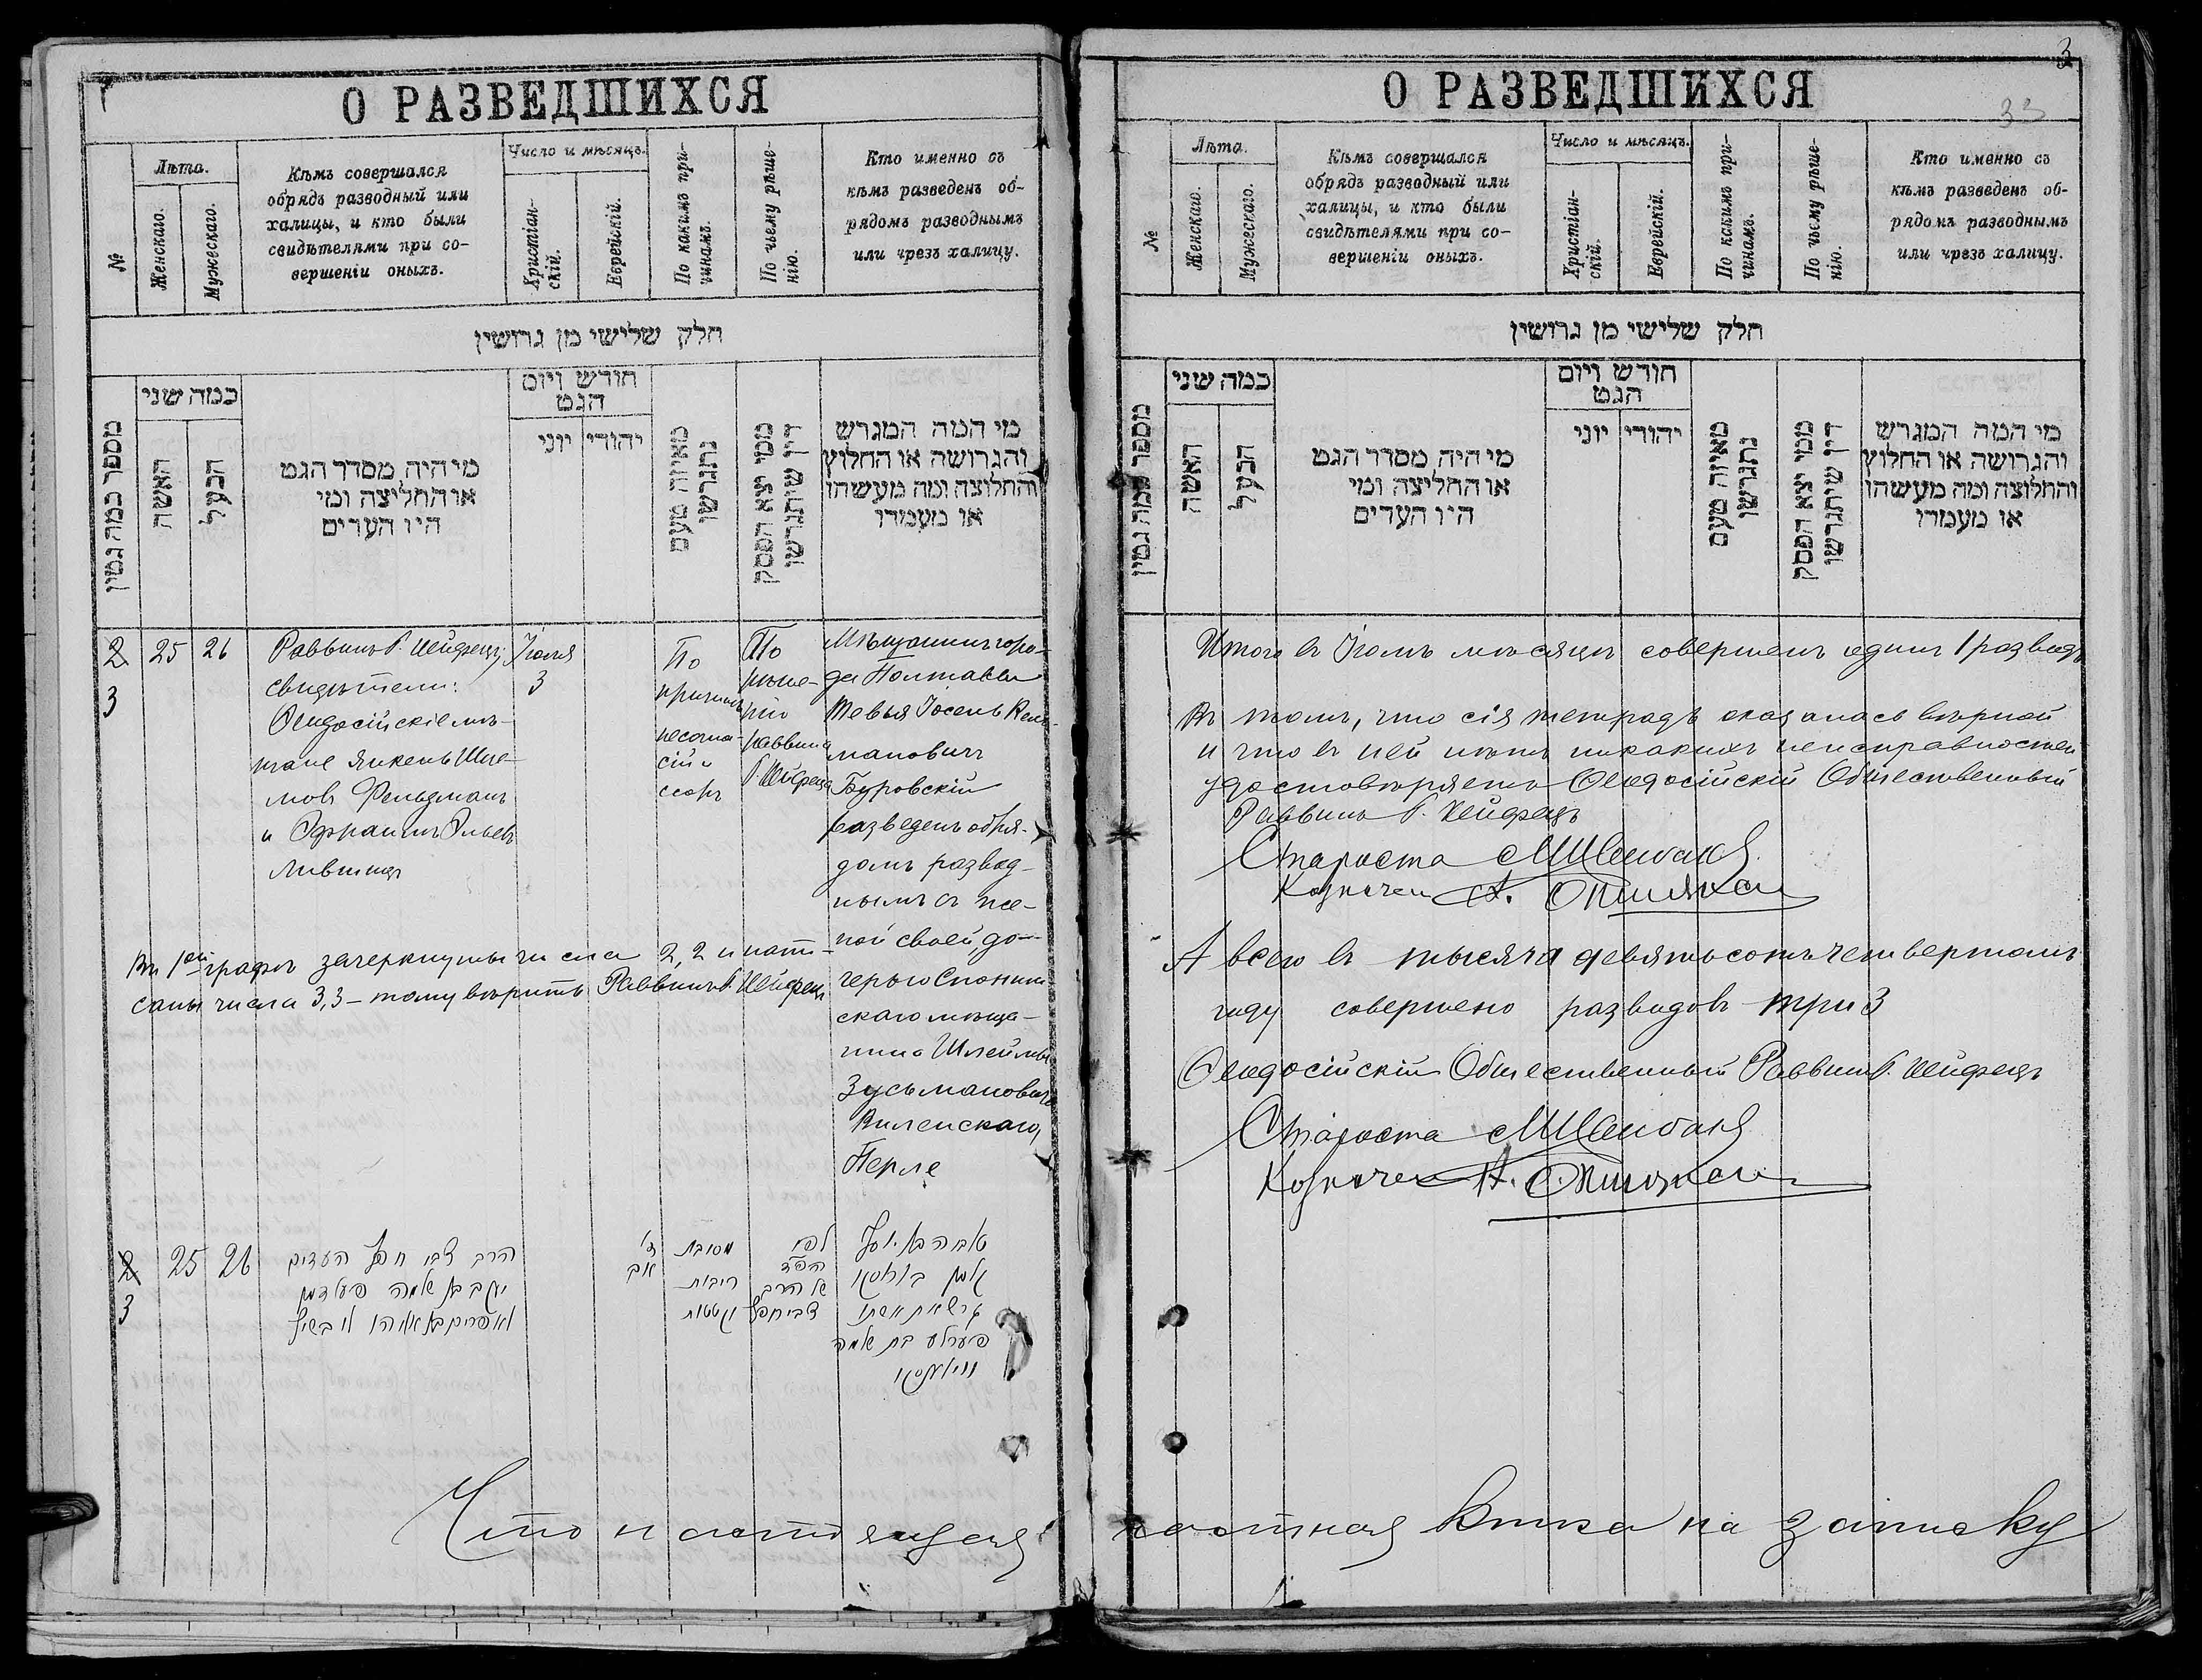 О РАЗВЕДШИХСЯ
№
Лѣта.
Женскаго.
Мужескаго.
Кѣмъ совершался
обрядъ разводный или
халицы, и кто были
свидѣтелями при со-
вершеніи оныхъ.
Число и мѣсяцъ.
Христіан-
скій.
Еврейскій.
По какимъ при-
чинамъ.
По чьему рѣше-
нію.
Кто именно съ
кѣмъ разведенъ об-
рядомъ разводнымъ
или чрезъ халицу.
חלק שלישי מן גרושין
מספר כמה גטין
כמה שני
האשה
הבעל
מי היה מסדר הגט
או החליצה ומי
היו העדים
חודש ויום
הגט
יוני
יהודי
מאיזה טעם
נתגרשו
ממי יצא הפסק
דין שיתגרשו
מי המה המגרש
והגרושה או החלוץ
והחלוצה ומה מעשהו
או מעמדו
2
3
25
26
Раввинъ Г. Хейфецъ;
свидѣтели:
Ѳеодосійскіе мѣ-
щане Янкель Шле-
мовъ Фельдманъ
и Эфраимъ Эльевъ
Лившицъ
Іюля
3
По
причинѣ
несогла-
сій и
ссоръ
По
рѣше-
нію
раввина
Г. Хейфеца
Мѣщанинъ горо-
да Полтавы
Тевья Іосель Кел-
мановичъ
Буровскій
разведенъ обря-
домъ развод-
нымъ съ же-
ной своей, до-
черью Слоним
скаго мѣща-
нина Шлеймы
Зусьмановича
Виленскаго,
Перле
Въ 1ой графѣ зачеркнуты числа 2, 2 и напи-
саны числа 3, 3 – тому вѣрить Раввинъ Г. Хейфецъ
2
3
25
26
הרב צבי חפץ העדים
יעקב בן שלמה פעלדמן
ואפרים בן אליהו ליבשיץ
ד'
אב
מסובת
ריבות
וקטטות
לפי
הפסד
של הרב
צבי חפץ
טביה בן יוסף
קלמן בוראסקי
גרש את אשתו
פערלע בת שלמה
ווילענסקי
Что настоящая
3
33
О РАЗВЕДШИХСЯ
№
Лѣта.
Женскаго.
Мужескаго.
Кѣмъ совершался
обрядъ разводный или
халицы, и кто были
свидѣтелями при со-
вершеніи оныхъ.
Число и мѣсяцъ.
Христіан-
скій.
Еврейскій.
По кскимъ при-
чинамъ.
По чьему рѣше-
нію.
Кто именно съ
кѣмъ разведенъ об-
рядомъ разводнымъ
или чрезъ халицу.
חלק שלישי מן גרושין
מספר כמה גטין
כמה שני
האשה
הבעל
מי היה מסדר הגט
או החליצה ומי
היו העדים
חודש ויום
הגט
יוני
יהודי
מאיזה טעם
נתגרשו
ממי יצא הפסק
דין שיתגרשו
מי המה המגרש
והגרושה או החלוץ
והחלוצה ומה מעשהו
או מעמדו
Итого въ Іюлѣ мѣсяцѣ совершенъ одинъ 1 разводъ
Въ томъ, что сія тетрадь оказалась вѣрной
и что въ ней нѣтъ никакихъ неисправностей
удостовѣряетъ Ѳеодосійскій Общественный
Раввинъ Г. Хейфецъ
Староста
Казначей А.
А всего въ тысяча девятьсотъ четвертомъ
году совершено разводовъ три 3
Ѳеодосійскій Общественный Раввинъ Г. Хейфецъ
Староста
Казначей А.
частная книга на записку